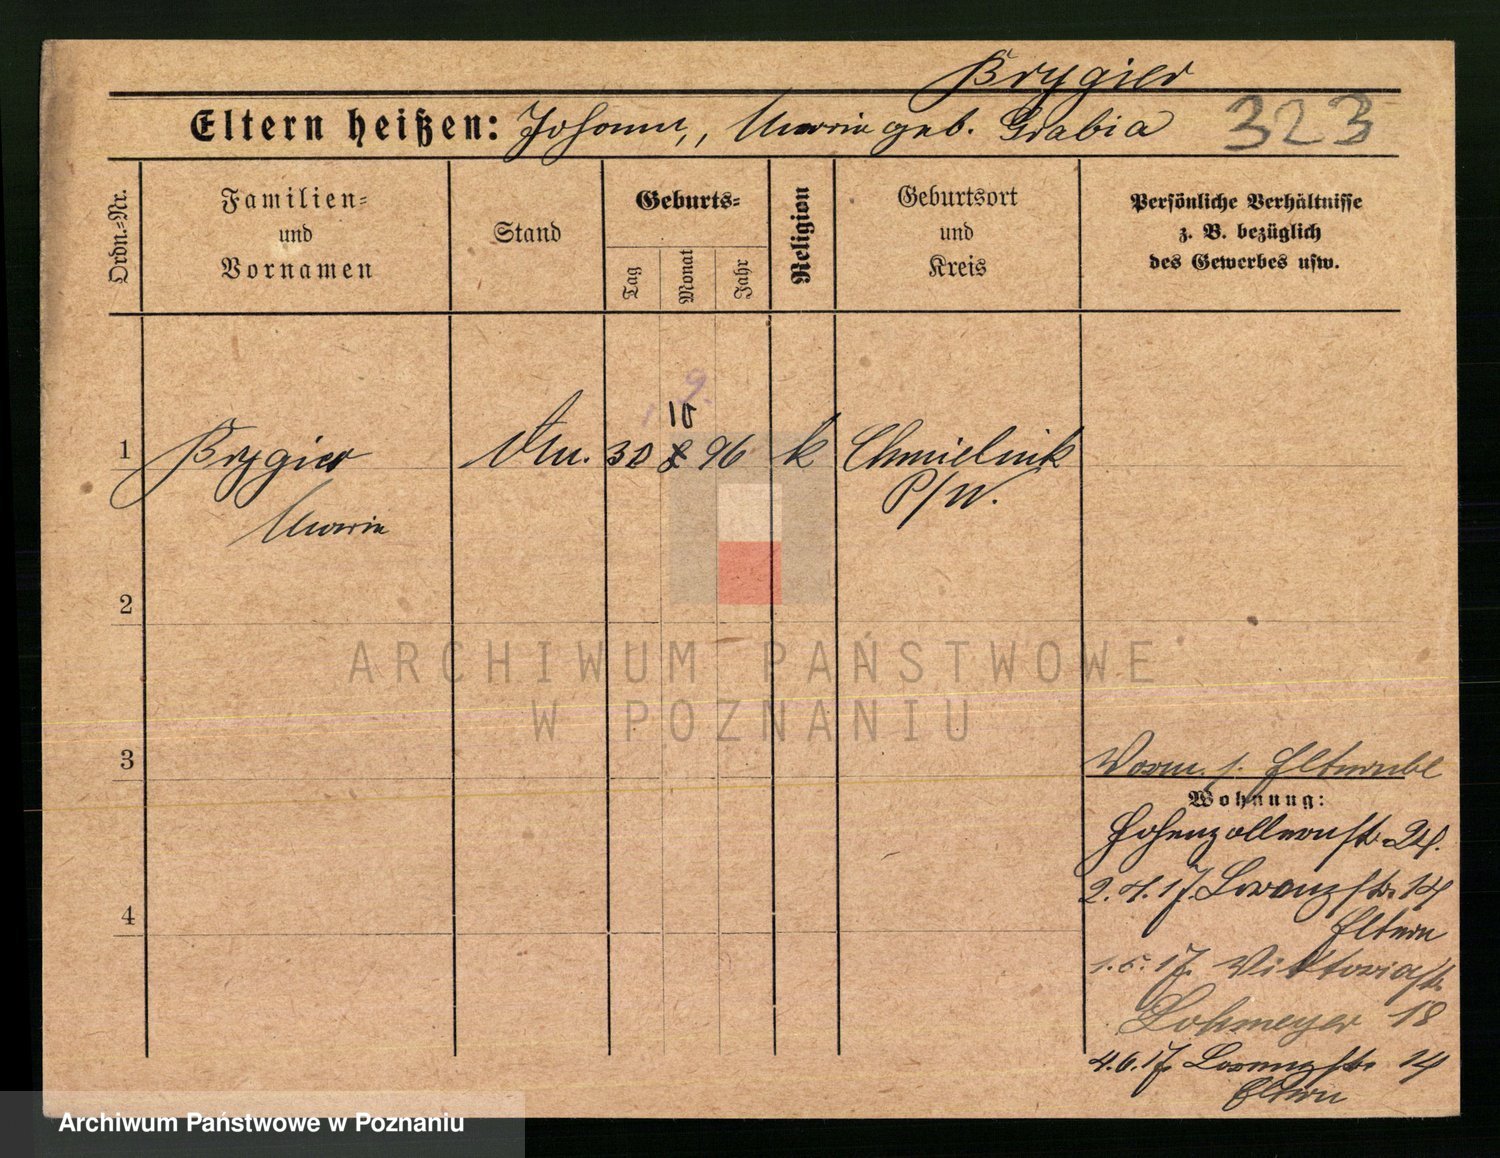 Brygier
Eltern heißen: Johann, Maria geb. Grabia 323
Ordn.=Nr.
Familien=
und
Vornamen
Stand
Geburts=
Tag
Monat
Jahr
Religion
Geburtsort
und
Kreis
Persönliche Verhältnisse
z. B. bezüglich
des Gewerbes usw.
9.
10
1 Brygier 30 8 96 k Chmielinik
P/W.
Maria
2
ARCHIWUM PAŃSTWOWE
W POZNANIU
3
Worm. s. Elternbl
Wohnung:
Hohenzollernstr. 24.
2.4.17. Lorenzstr. 14
Eltern
1.5.17. Viktoriastr.
Lohmeyer 18
4
4.6.17. Lorenzstr. 14
Eltern
Archiwum Państwowe w Poznaniu